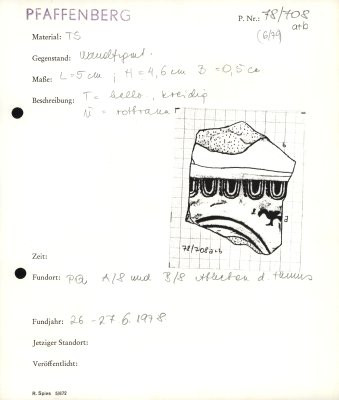 PFAFFENBERG
P. Nr.: 78/708
a+b
(6/79)
Material: TS
Gegenstand: Wandfgmt.
Maße: L = 5 cm ; H = 4,6 cm B = 0,5 cm
Beschreibung: T = hell, kreidig
Ü = rotbraun
78/708 a+b
Zeit:
Fundort: A/8 und B/8 d.
Fundjahr: 26 - 27 6. 1978
Jetziger Standort:
Veröffentlicht:
R. Spies 5/672